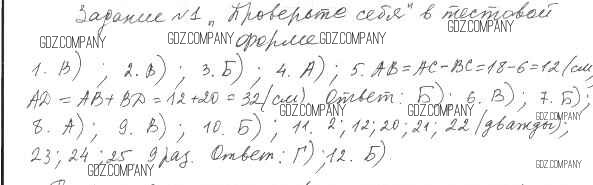 Задание №1 „Проверьте себя" в тестовой
GDZ.COMPANY GDZ.COMPANY GDZ.COMPANY GDZ.COMPANY
форме
1. В) ; 2. В) ; 3. Б) ; 4. А) ; 5. AB = AC - BC = 18 - 6 = 12 (см,
AD = AB + BD = 12 + 20 = 32 (см). Ответ: Б) ; 6. В) ; 7. Б) ;
GDZ.COMPANY GDZ.COMPANY
8. А) ; 9. В) ; 10. Б) ; 11. 2; 12; 20; 21; 22 (дважды);
GDZ.COMPANY
23; 24; 25 9 раз. Ответ: Г) ; 12. Б).
GDZ.COMPANY GDZ.COMPANY